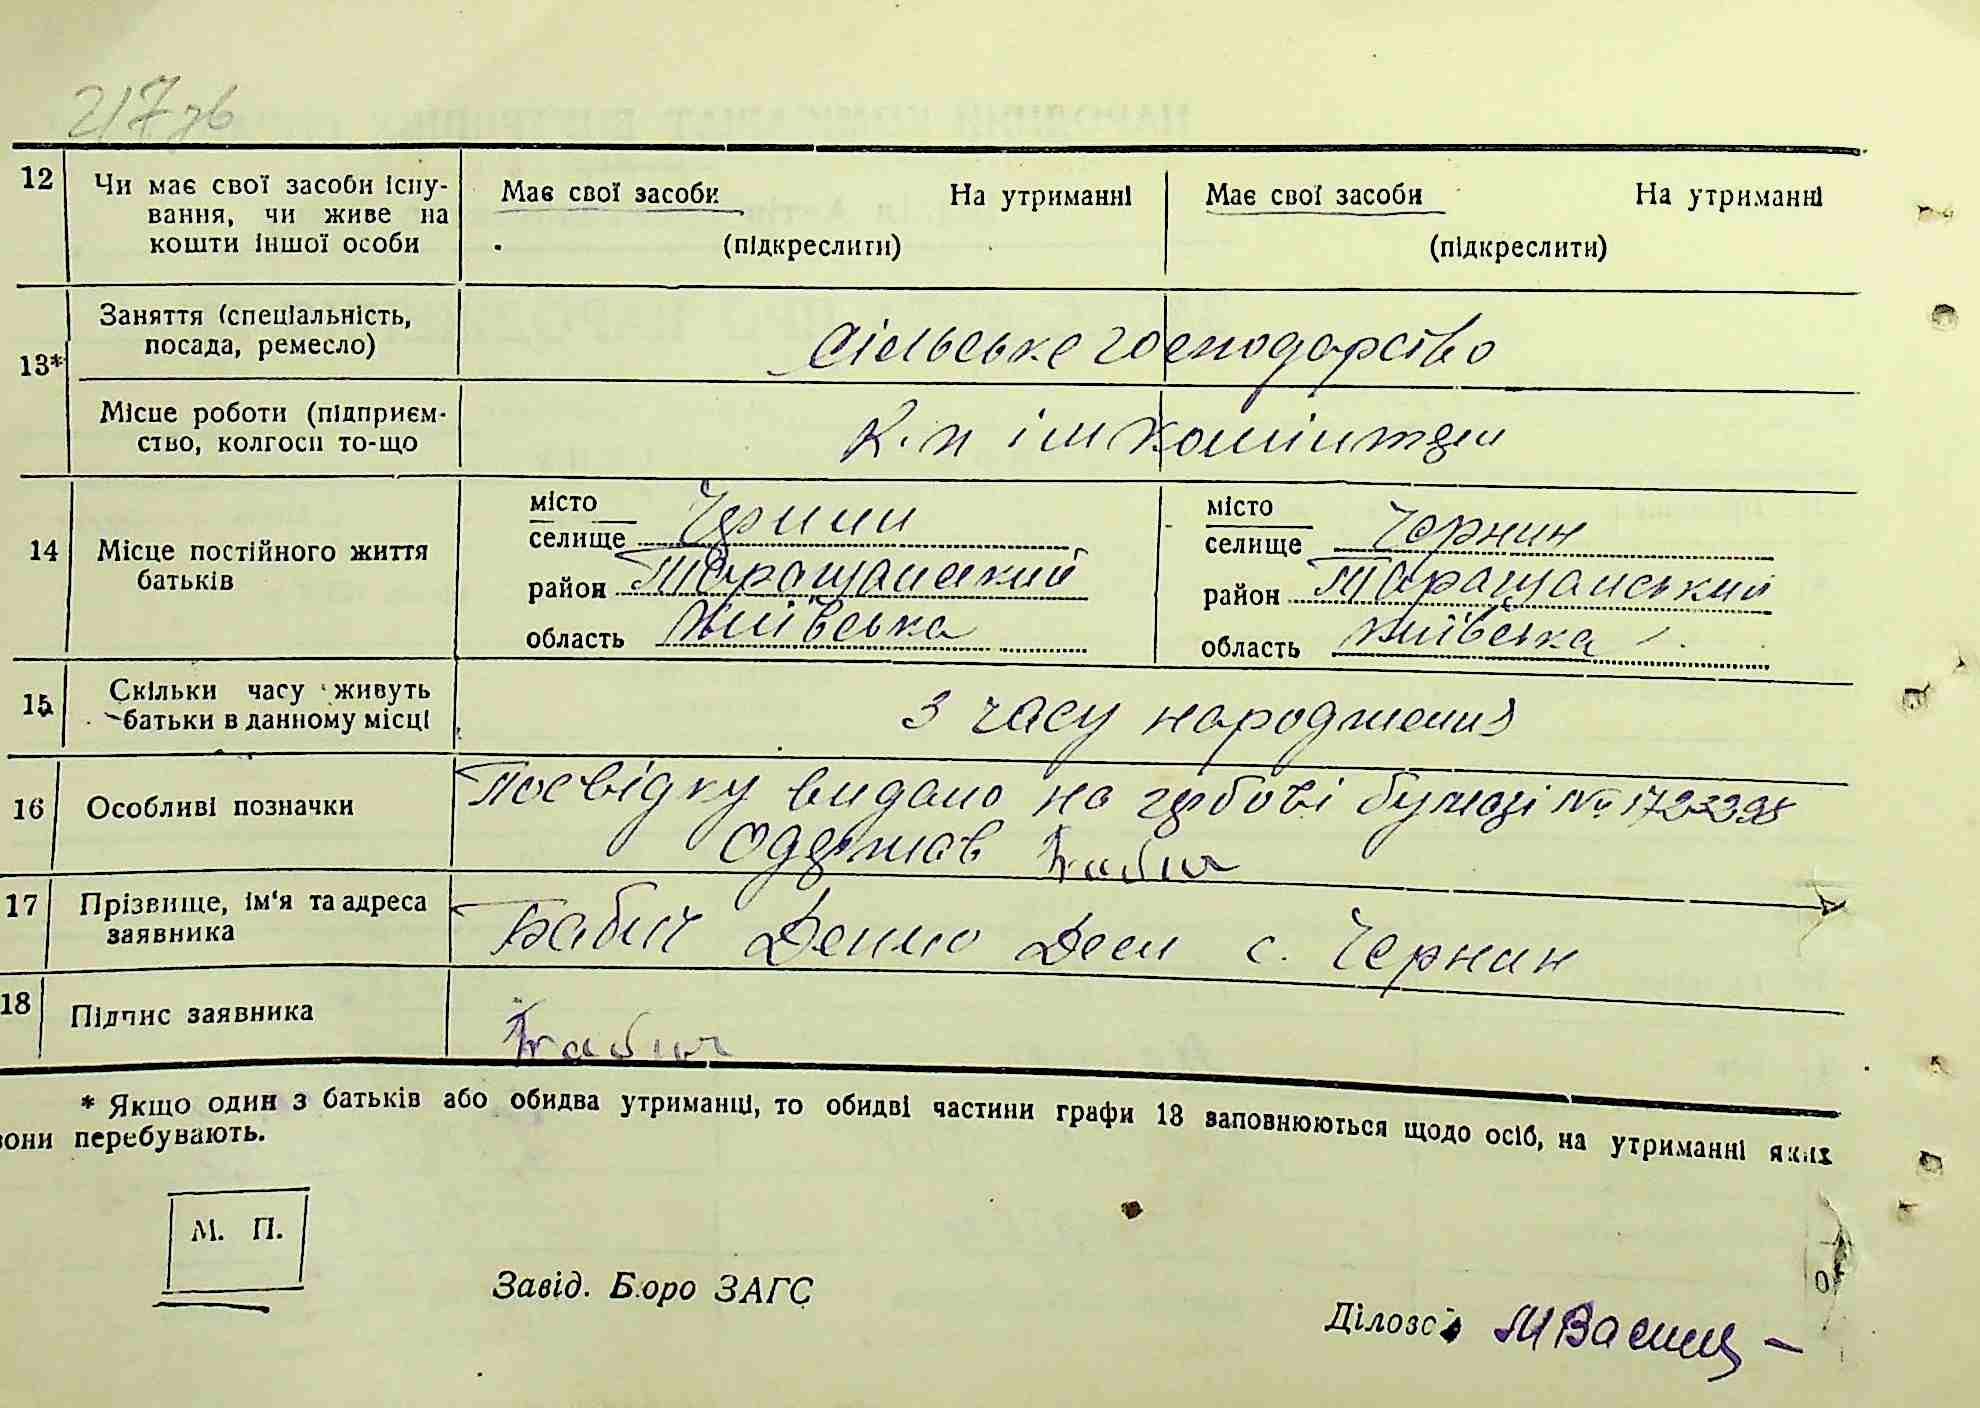 217 зв
12 Чи має свої засоби існу-
вання, чи живе на
кошти іншої особи
Має свої засоби На утриманні
(підкреслити)
Має свої засоби На утриманні
(підкреслити)
13* Заняття (спеціальність,
посада, ремесло)
сільське господарство
Місце роботи (підприєм-
ство, колгосп то-що
К-п ім комінтерн
14 Місце постійного життя
батьків
місто
селище Чернин
район Таращанський
область Київська
місто
селище Чернин
район Таращанський
область Київська
15 Скільки часу живуть
батьки в данному місці
з часу народження
16 Особливі позначки
Посвідку видано на гербові бумазі №
одержав Бабич
17 Прізвище, ім'я та адреса
заявника
Бабич с. Чернин
18 Підпис заявника
Бабич
* Якщо один з батьків або обидва утриманці, то обидві частини графи 13 заповнюються щодо осіб, на утриманні яких
вони перебувають.
М. П.
Завід. Бюро ЗАГС
Діловод